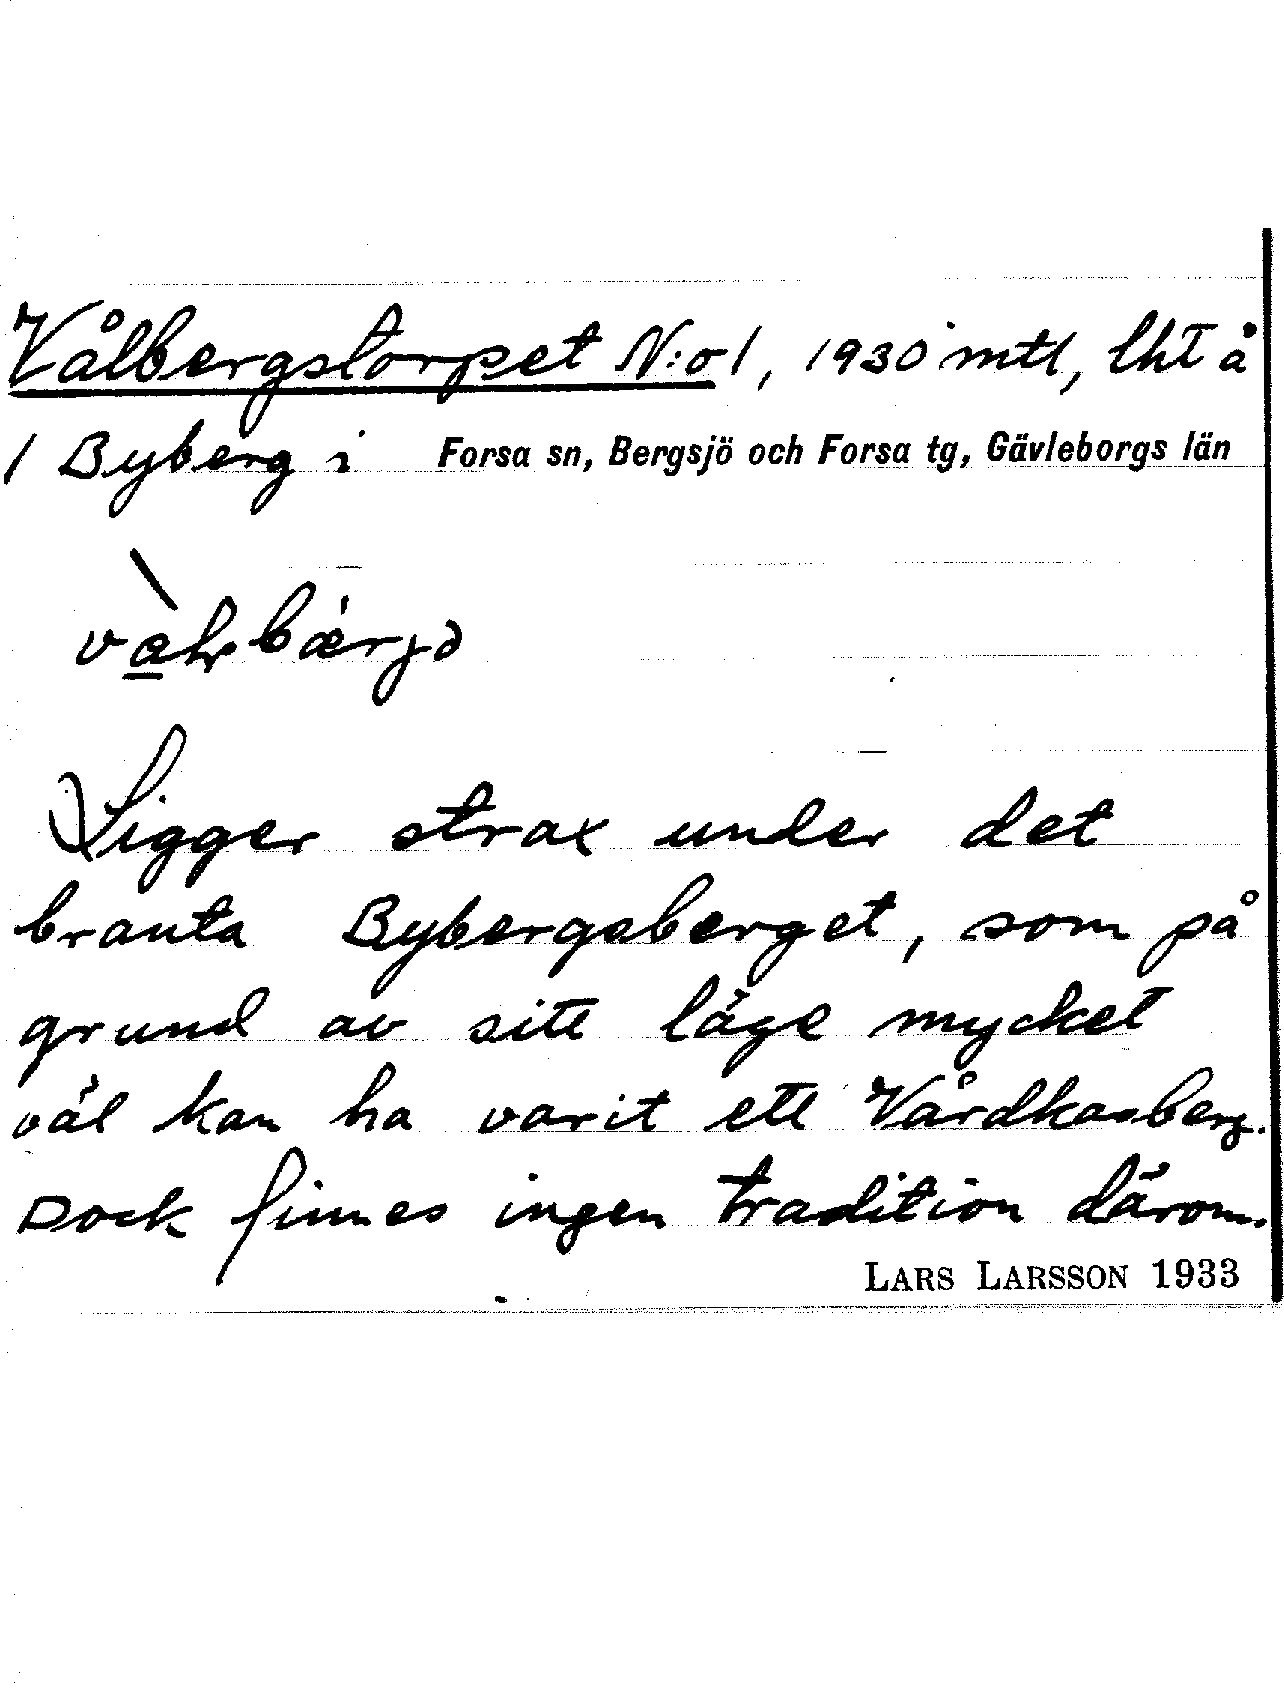 Vålbergstorpet N:o 1, 1930 mtl, lht å
1 Byberg i Forsa sn, Bergsjö och Forsa tg, Gävleborgs län
Ligger strax under det
branta Bybergsberget, som på
grund av sitt läge mycket
väl kan ha varit ett Vårdkasberg.
Dock finnes ingen tradition därom.
LARS LARSSON 1933